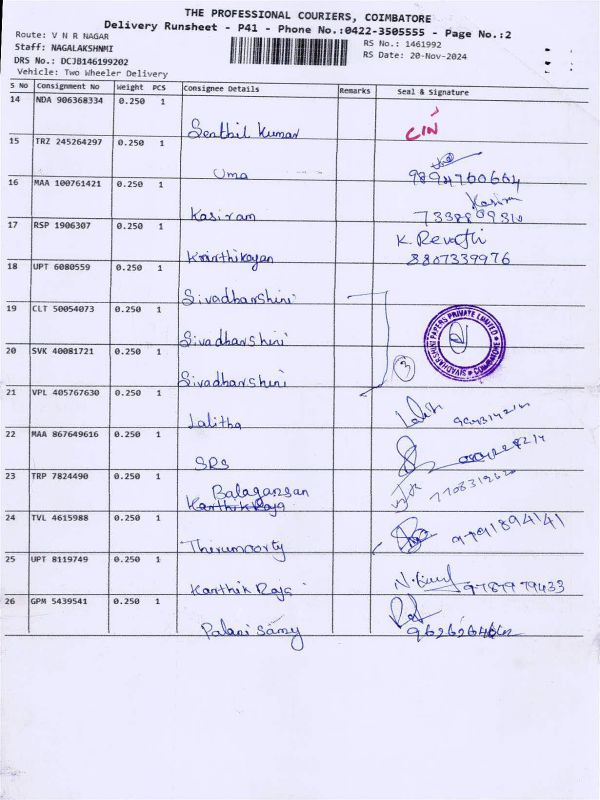 THE PROFESSIONAL COURIERS, COIMBATORE
Delivery Runsheet - P41 - Phone No.:0422-3505555 - Page No.:2
Route: V N R NAGAR
RS No.: 1461992
Staff: NAGALAKSHNMI
RS Date: 20-Nov-2024
DRS No.: DCJB146199202
Vehicle: Two Wheeler Delivery
S No Consignment No Weight PCS Consignee Details Remarks Seal & Signature
14 NDA 906368334 0.250 1
Senthil Kumar
15 TRZ 245264297 0.250 1
Uma 9894760664
16 MAA 100761421 0.250 1
Kasiram
Kasiram
17 RSP 1906307 0.250 1
K. Revathi
Krinthikeyan 8807339976
18 UPT 6080559 0.250 1
Sivadharshini
19 CLT 50054073 0.250 1
SIVADHARSHINI PAPERS PRIVATE LIMITED COIMBATORE
Sivadharshini
20 SVK 40081721 0.250 1
3
Sivadharshini
21 VPL 405767630 0.250 1
Lalitha
22 MAA 867649616 0.250 1
SRS
23 TRP 7824490 0.250 1
Balagansan
24 TVL 4615988 0.250 1
9791894141
Thirumoorty
25 UPT 8119749 0.250 1
Karthik Raja 9787979433
26 GPM 5439541 0.250 1
Palani Samy